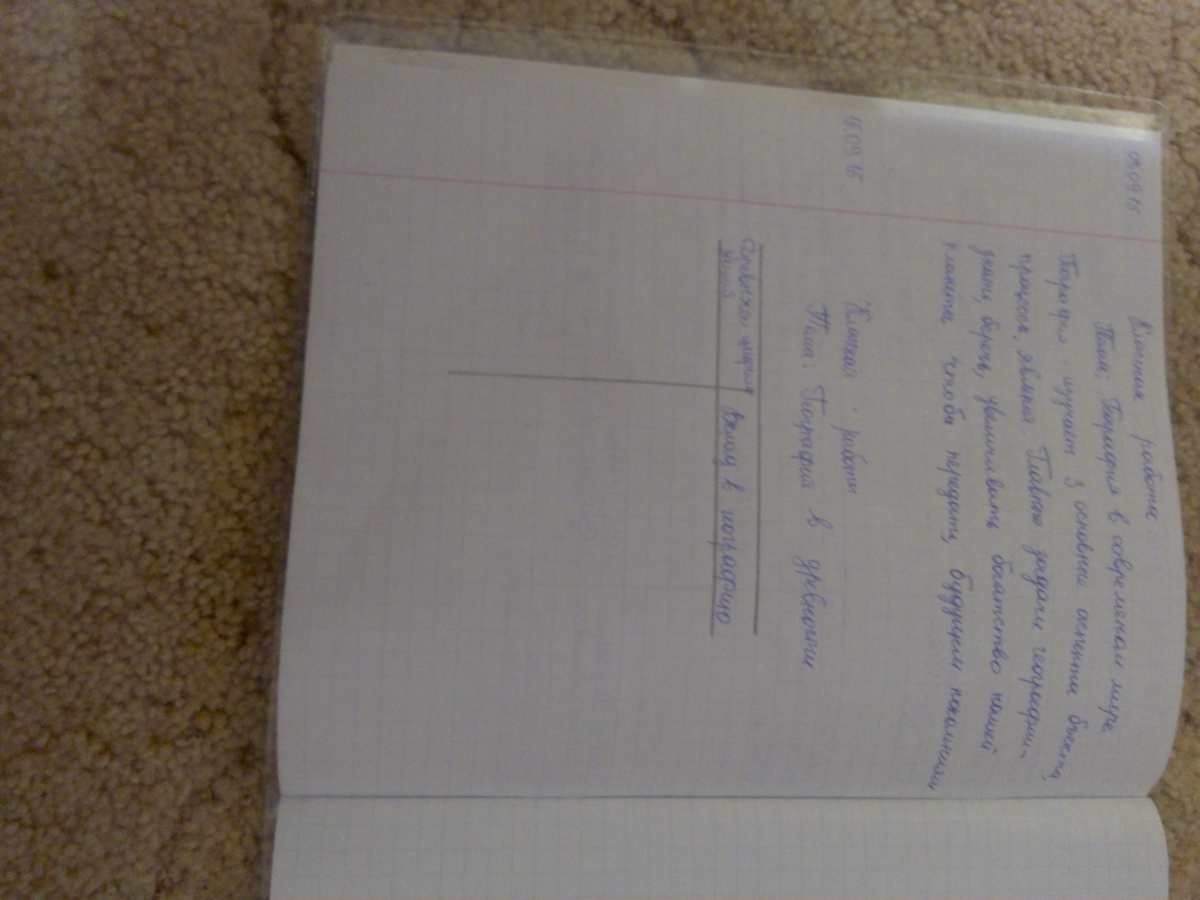 Классная работа
Тема: География в современном мире
География - изучает 3 основных аспекта объекты,
процессы, явления. Главная задача географии -
знать, беречь, увеличивать богатство нашей
планеты, чтобы передать будущим поколениям
15.09.15
Классная работа
Тема: География в древности
Древняя цивили
зация
Вклад в географию